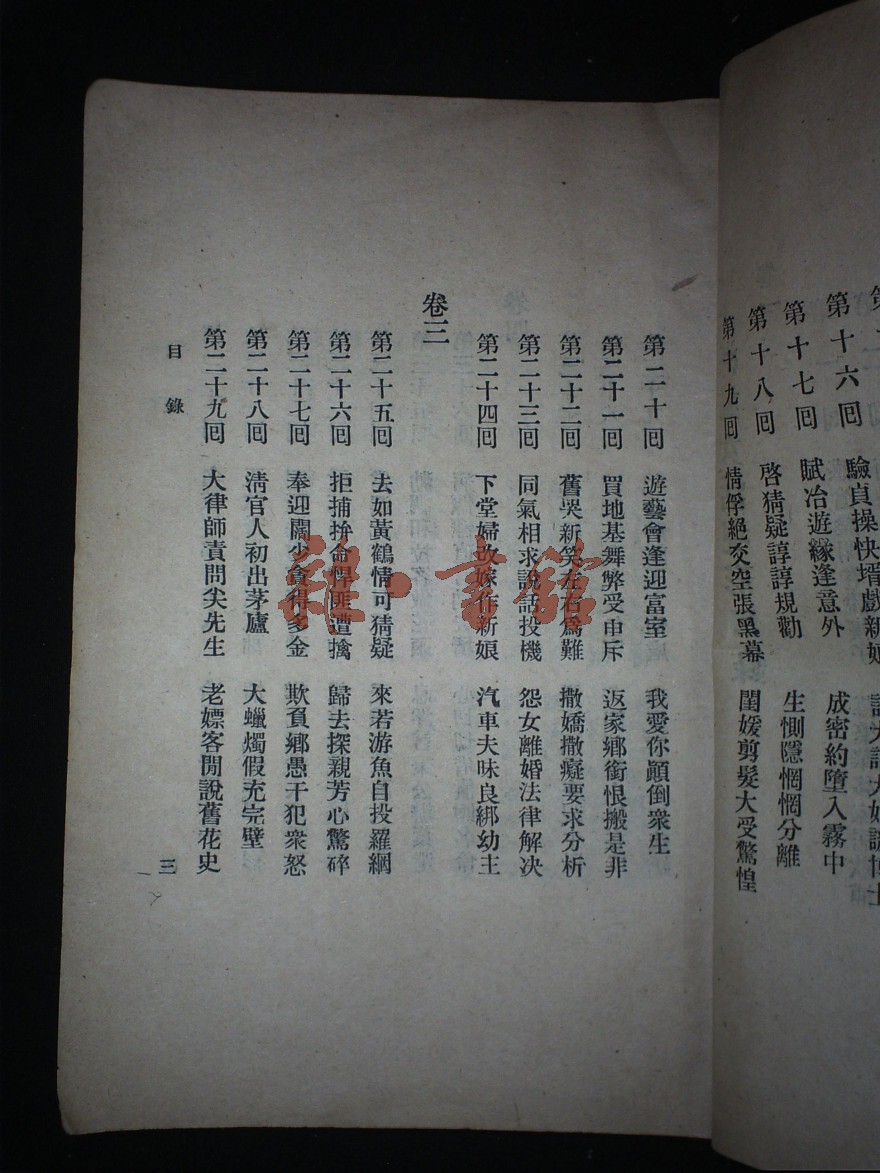 第十六回 驗貞操快壻戲新娘
第十七回 賦冶遊緣逢意外 成密約墮入霧中
第十八回 啓猜疑諄諄規勸 生惻隱惘惘分離
第十九回 情俘絕交空張黑幕 閨媛剪髮大受驚惶
第二十回 遊藝會逢迎富室 我愛你顚倒衆生
第二十一回 買地基舞弊受申斥 返家鄉銜恨搬是非
第二十二回 舊哭新笑左右爲難 撒嬌撒癡要求分析
第二十三回 同氣相求說話投機 怨女離婚法律解决
第二十四回 下堂婦改嫁作新娘 汽車夫昧良綁幼主
卷三
第二十五回 去如黃鶴情可猜疑 來若游魚自投羅網
第二十六回 拒捕拚命悍匪遭擒 歸去探親芳心驚碎
第二十七回 奉迎闊少貪得多金 欺負鄉愚干犯衆怒
第二十八回 淸官人初出茅廬 大蠟燭假充完壁
第二十九回 大律師責問尖先生 老嫖客閒說舊花史
目錄
三
書館